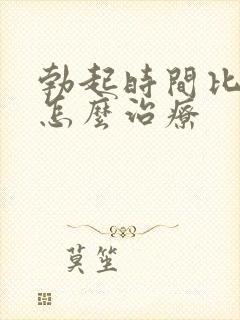 勃起時間比
怎麼治療
莫笙